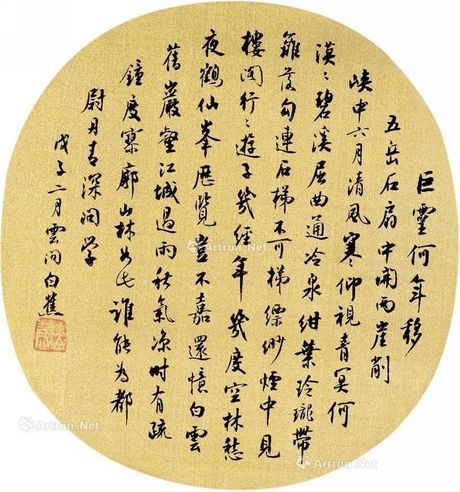 巨靈何年移
五岳石扇中開两崖削
峡中六月清風寒仰視青冥何
漠〻碧溪屈曲通冷泉紺葉玲瓏帶
籬落勾連石梯不可梯縹緲煙中見
樓閣行〻遊子幾經年幾度空林愁
夜鶴仙峯歷覽豈不嘉還憶白雲
舊巖壑江城過雨秋氣凉時有疏
鐘度寥廓山林如此誰能為都
尉月青深同學
戊子二月雲間白蕉
Artron.Net
Artron.Net
Artron.Net
Artron.Net